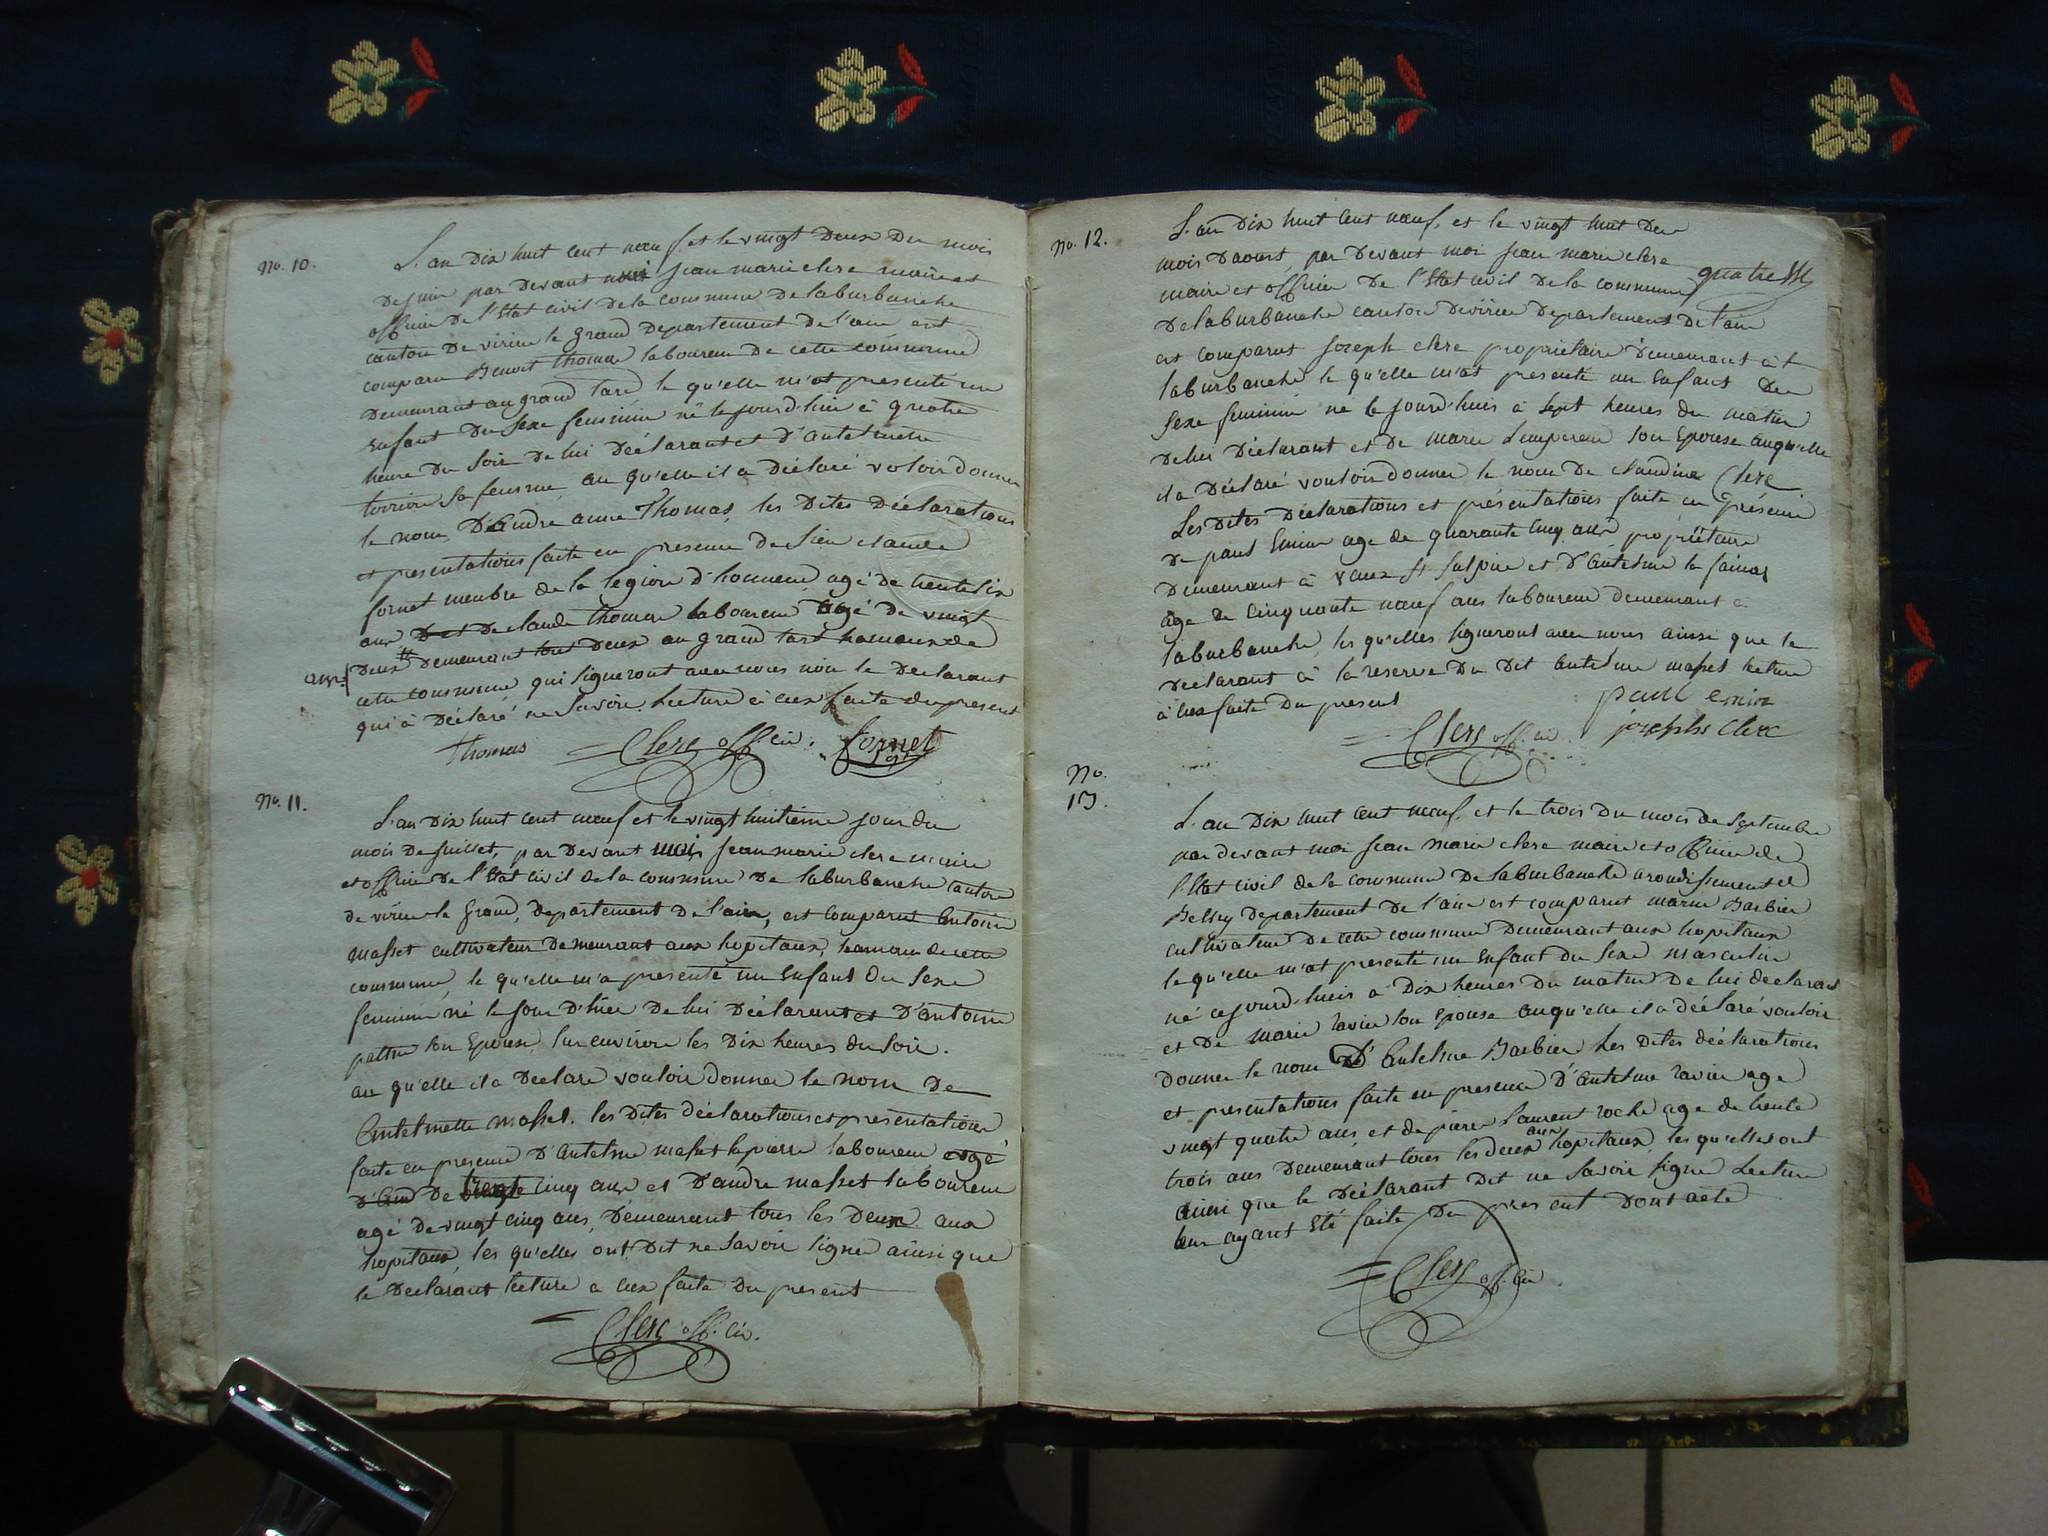 No. 10.
L'an Dix huit cent neuf et le vingt deux Du mois
De juin par Devant moi jean marie clerc maire et
officier De l'Etat civil De la commune De laburbanche
canton De virieu le grand Departement De l'ain est
comparu Benoit thomas laboureur De cette commune
Demeurant au grand tard le qu'elle m'at presenté un
enfant Du sexe feminin né le jourd'hui à quatre
heure Du soir De lui Déclarant et D'antelmette
sa femme, au qu'elle il a Déclaré voloir donner
le nom D'andre anne Thomas, les Dites Déclarations
et presentations faite en presence De sieur claude
fornet membre de la legion d'honneur agé de trente six
ans Et De claude thomas laboureur agé De vingt
Deux Demeurant tout Deux au grand tard hameaux de
cette commune qui signeront avec nous non le Declarant
qui à Déclaré ne savoir. Lecture à eux faite du present
thomas Clerc off. civ. fornet
No. 11.
L'an Dix huit cent neuf et le vingt huitieme jour du
mois De juillet, par Devant moi jean marie clerc maire
et officier De l'Etat civil de la commune De laburbanche canton
de virieu le grand, Departement De l'ain, est comparut antoine
masset cultivateur Demeurant aux hopitaux, hamau de cette
commune, le qu'elle m'a presenté un enfant Du sexe
feminin né le jour D'hier De lui Déclarant et D'antoine
son Epouse, sur environ les Dix heures du soir.
au qu'elle il a Declaré vouloir donner le nom De
antelmette masset. les Dites déclarations et présentations
faite en presence D'antelme masset lapierre laboureur agé
De cinq ans et D'andre masset laboureur
agé De vingt cinq ans, Demeurant tous les Deux aux
hopitaux, les qu'elles ont Dit ne savoir signer ainsi que
le Declarant lecture a eux faite Du present
Clerc off. civ.
No. 12.
L'an Dix huit cent neuf, et le vingt huit Du
mois D'aoust, par Devant moi jean marie clerc
maire et officier De l'Etat civil de la commune quatre
De laburbanche canton De virieu Departement De l'ain
est comparut joseph clerc propriétaire Demeurant à
laburbanche le qu'elle m'at presenté un enfant Du
sexe feminin né le jourd'huis à sept heures du matin
De lui Déclarant et de marie son Epouse auqu'elle
il a Déclaré vouloir donner le nom De claudine Clerc
Les Dites Déclarations et présentations faite en présence
De paul Emin age de quarante cinq ans propriétaire
Demeurant à vaux St Sulpice et D'antelme
age de cinquante neuf ans laboureur demeurant à
laburbanche, les qu'elles signeront avec nous ainsi que le
Declarant à la reserve Du Dit antelme masset lecture
à eux faite Du present
paul emin
Clerc off. civ. josephs clerc
No.
13.
L'an Dix huit cent neuf, et le trois Du mois De septembre
par devant moi jean marie clerc maire et officier de
l'Etat civil de la commune De laburbanche arondissement de
Belley departement De l'ain est comparut Barbier
cultivateur De cette commune Demeurant aux hopitaux
le qu'elle m'at presenté un enfant Du sexe masculin
né ce jourd'huis a Dix heures Du matin De lui declarant
et De marie ravier son Epouse auqu'elle il a déclaré vouloir
donner le nom D'antelme Barbier Les Dites déclarations
et presentations faite en presence D'antelme ravier age
vingt quatre ans, et de pierre laurent roche age de trente
trois ans Demeurant tous les deux aux hopitaux, les qu'elles ont
ainsi que le Déclarant Dit ne savoir signer Lecture
leur ayant été faite Du present Dont acte
Clerc off. civ.